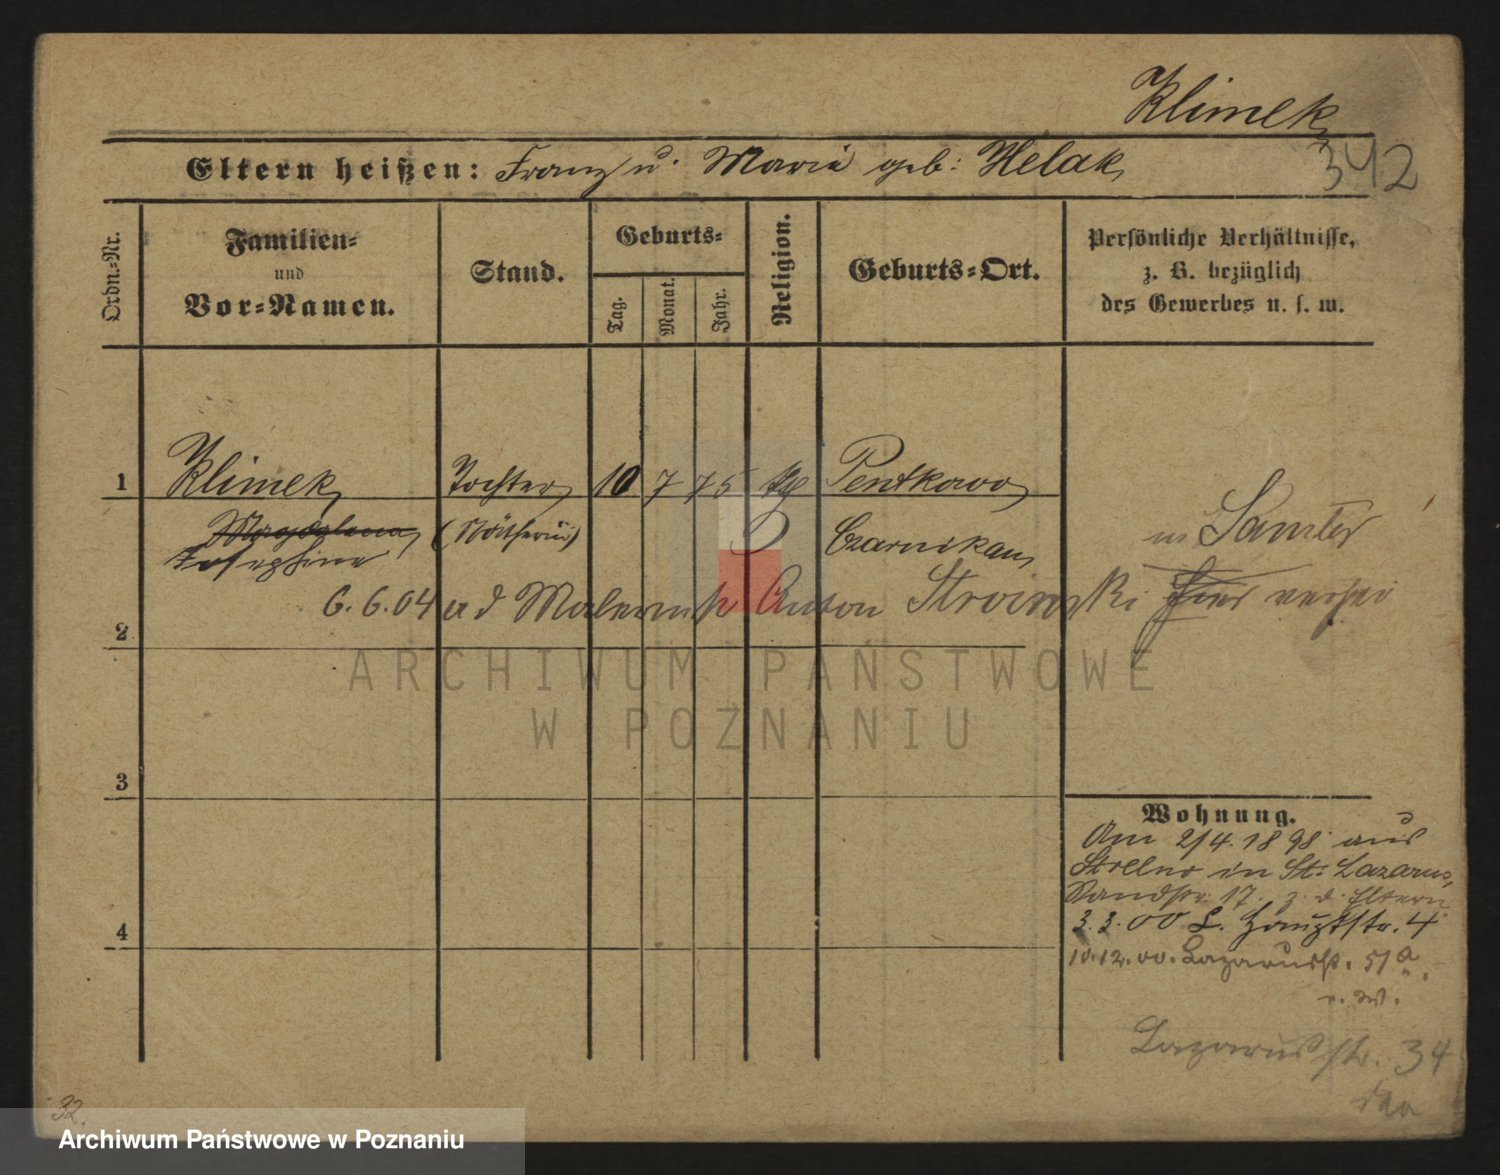 Klimek
342
Eltern heißen: Franz u. Maria geb: Helak
Ordn.-Nr.
Familien-
und
Vor-Namen.
Stand.
Geburts-
Tag.
Monat.
Jahr.
Religion.
Geburts-Ort.
Persönliche Verhältnisse,
z. B. bezüglich
des Gewerbes u. s. w.
1
Klimek Tochter 10 7 75 kg Pentkowo
Magdalena (Nätherin) Czarnikau
Josephine
in Samter
6. 6. 04 a d Anton Stroinski hier
2
3
4
Wohnung.
Am 2/4. 1898 aus
Strelno in St. Lazarus,
17. z. d. Eltern
3. 3. 00 L. Hauptstr. 4
10. 12. 00. Lazarusstr. 51a
Lazarus str. 34
32.
ARCHIWUM PAŃSTWOWE
W POZNANIU
Archiwum Państwowe w Poznaniu